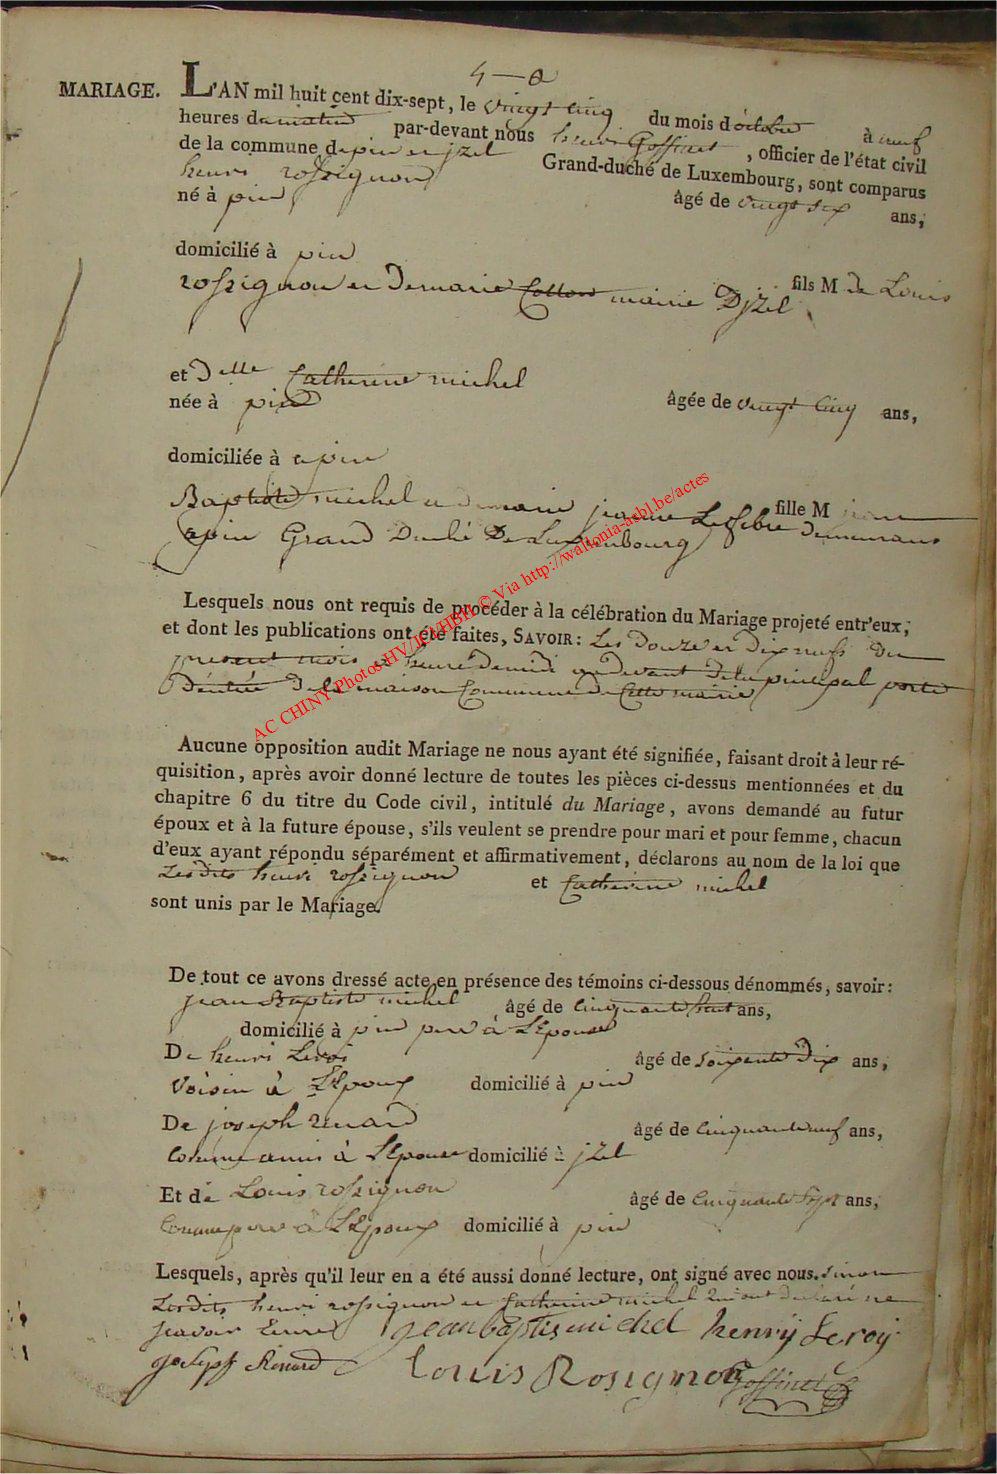 4
MARIAGE.
L'AN mil huit cent dix-sept, le vingt cinq du mois d'octobre à neuf
heures du matin par-devant nous henri Goffinet, officier de l'état civil
de la commune de pin et jzel Grand-duché de Luxembourg, sont comparus
henri rossignon âgé de vingt six ans,
né à pin
domicilié à pin
fils M de Louis
rossignon et de marie Collon mairie D'jzel
et Delle Catherine michel
née à pin âgée de vingt cinq ans,
domiciliée à a pin
fille M jean
Baptiste michel et de marie jeanne Lefebre demeurant
apin Grand Duché De Luxembourg
Lesquels nous ont requis de procéder à la célébration du Mariage projeté entr'eux,
et dont les publications ont été faites, SAVOIR: Les Douze et Dix neuf du
present mois a heure de midi devant de la principal porte
D'entrée De la maison Commune de Cette mairie
Aucune opposition audit Mariage ne nous ayant été signifiée, faisant droit à leur ré-
quisition, après avoir donné lecture de toutes les pièces ci-dessus mentionnées et du
chapitre 6 du titre du Code civil, intitulé du Mariage, avons demandé au futur
époux et à la future épouse, s'ils veulent se prendre pour mari et pour femme, chacun
d'eux ayant répondu séparément et affirmativement, déclarons au nom de la loi que
Lesdits henri rossignon et Catherine michel
sont unis par le Mariage.
De tout ce avons dressé acte en présence des témoins ci-dessous dénommés, savoir:
jean Baptiste michel âgé de Cinquante huit ans,
domicilié à pin pere à L'Epouse
De henri Leroi âgé de Soixante Dix ans,
Voisin à L'Epoux domicilié à pin
De joseph renard âgé de Cinquante neuf ans,
Comme amis à L'Epouse domicilié à jzel
Et de Louis rossignon âgé de Cinquante Sept ans,
Comme pere à L'Epoux domicilié à pin
Lesquels, après qu'il leur en a été aussi donné lecture, ont signé avec nous. Sinon
Lesdits henri rossignon et Catherine michel qui ont declaré ne
scavoir Ecrire jean baptis michel henrij Leroij
Josepf Rénard Louis Rosignon Goffinet
AC CHINY Photos HV/ICI/HBH © Via http://wallonia-asbl.be/actes